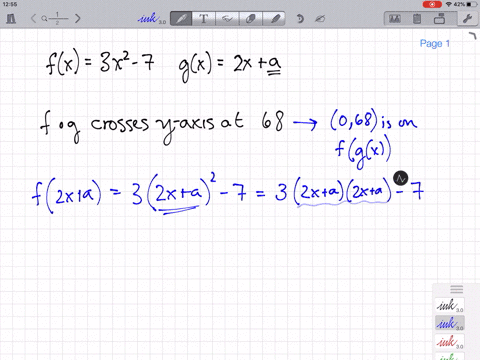 12:55 42%
1/2 ink 3.0 T
Page 1
f(x) = 3x² - 7 g(x) = 2x + a
f∘g crosses y-axis at 68 → (0,68) is on
f(g(x))
f(2x+a) = 3(2x+a)² - 7 = 3(2x+a)(2x+a) - 7
ink 3.0
ink 3.0
ink 3.0